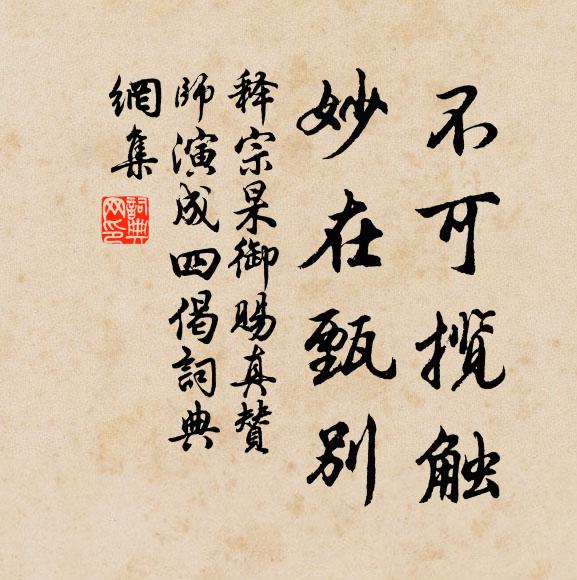 不可揽触
妙在甄别
释宗杲御赐真赞
师演成四偈词典
網集
詞典
网印